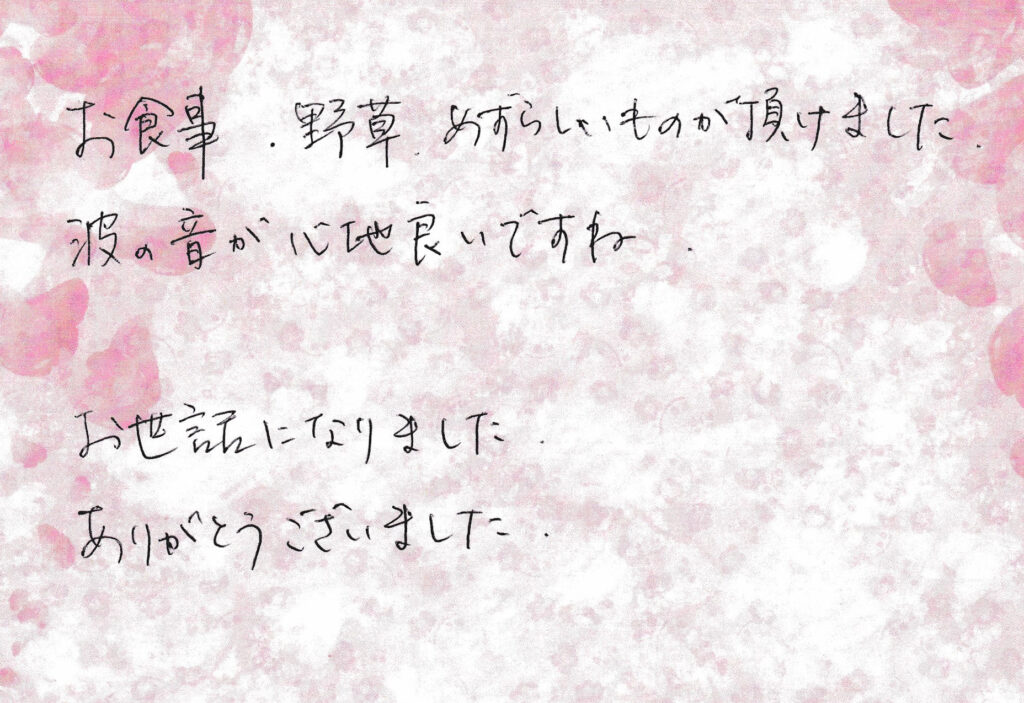 お食事．野草．めずらしいものが頂けました．
波の音が心地良いですね．
お世話になりました．
ありがとうございました．